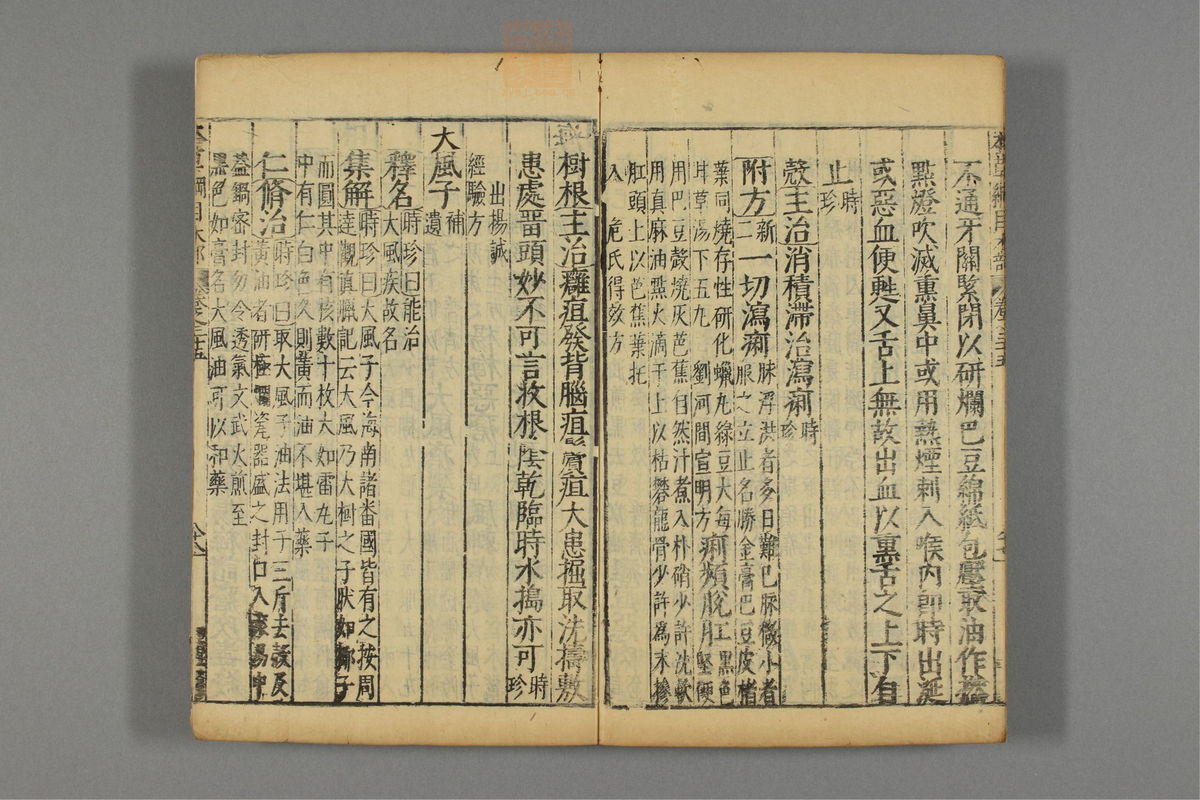 不通牙關緊閉以研爛巴豆綿紙包壓取油作撚
點燈吹滅熏鼻中或用熱煙刺入喉內即時出涎
或惡血便甦又舌上無故出血以熏舌之上下自
止時珍
殼主治消積滯治瀉痢時珍
附方新二一切瀉痢脉浮洪者多日難已脉微小者
服之立止名勝金膏巴豆皮楮
葉同燒存性研化蠟丸綠豆大每
甘草湯下五丸 劉河間宣明方痢頻脫肛黑色
堅硬
用巴豆殼燒灰芭蕉自然汁煮入朴硝少許洗軟
用真麻油點火滴于上以枯礬龍骨少許為末摻
肛頭上以芭蕉葉托
入 危氏得效方
樹根主治癰疽發背腦疽鬢疽大患掘取洗擣敷
患處留頭妙不可言收根陰乾臨時水搗亦可時珍
出楊誠
經驗方
大風子補遺
釋名時珍曰能治
大風疾故名
集解時珍曰大風子今海南諸番國皆有之按周
達觀真臘記云大風乃大樹之子狀如椰子
而圓其中有核數十枚大如雷丸子
中有仁白色久則黃而油不堪入藥
仁脩治時珍曰取大風子油法用子三斤去殼及
黃油者研極爛瓷器盛之封口入滾湯中
蓋鍋密封勿令透氣文武火煎至
黑色如膏名大風油可以和藥
本草綱目木部 卷之三十五